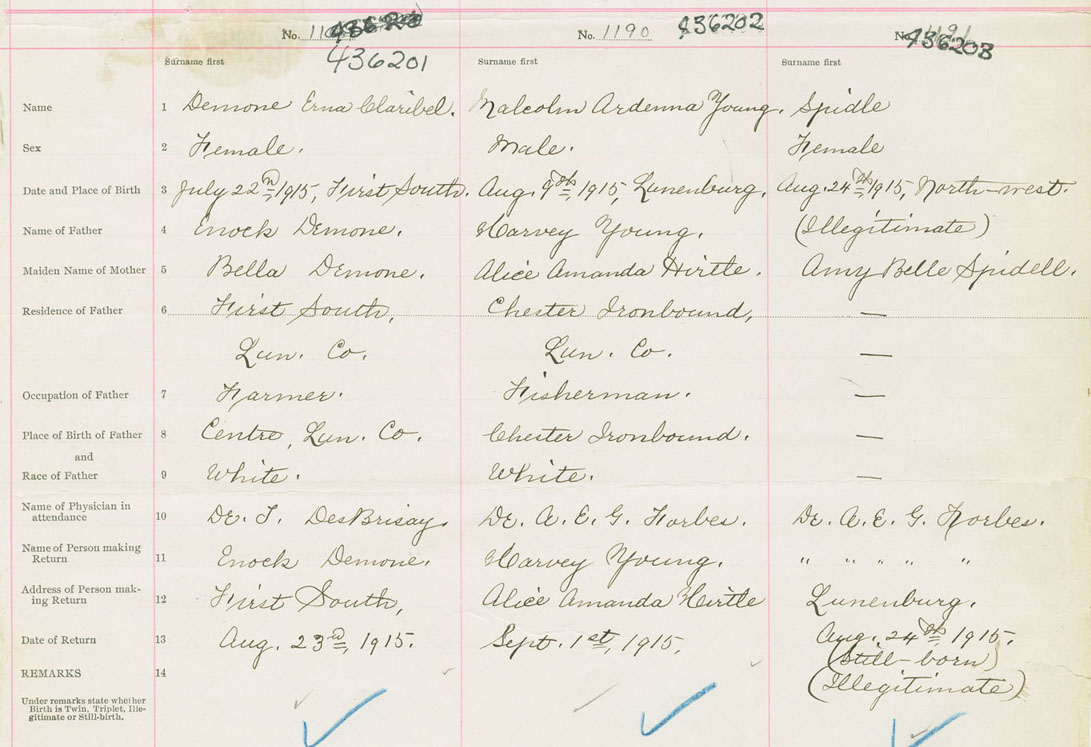 No. 436201 No. 1190 436202 No. 436203
Surname first Surname first Surname first
Name 1 Demone Erna Claribel. Malcolm Ardenna Young. Spidle
Sex 2 Female. Male. Female
Date and Place of Birth 3 July 22nd, 1915, First South. Aug. 9th, 1915, Lunenburg. Aug. 24th, 1915, North-west.
Name of Father 4 Enock Demone. Harvey Young. (Illegitimate)
Maiden Name of Mother 5 Bella Demone. Alice Amanda Hirtle. Amy Belle Spidell.
Residence of Father 6 First South, Chester Ironbound, —
Lun. Co. Lun. Co. —
Occupation of Father 7 Farmer. Fisherman. —
Place of Birth of Father 8 Centre, Lun. Co. Chester Ironbound. —
and
Race of Father 9 White. White. —
Name of Physician in
attendance 10 Dr. T. DesBrisay. Dr. A. E. G. Forbes. Dr. A. E. G. Forbes.
Name of Person making
Return 11 Enock Demone. Harvey Young. " " " " "
Address of Person mak-
ing Return 12 First South, Alice Amanda Hirtle Lunenburg.
Date of Return 13 Aug. 23rd, 1915. Sept. 1st, 1915. Aug. 24th, 1915.
(Still-born)
REMARKS 14 (Illegitimate)
Under remarks state whether
Birth is Twin, Triplet, Ille-
gitimate or Still-birth.